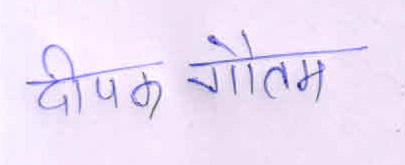 दीपक गौतम